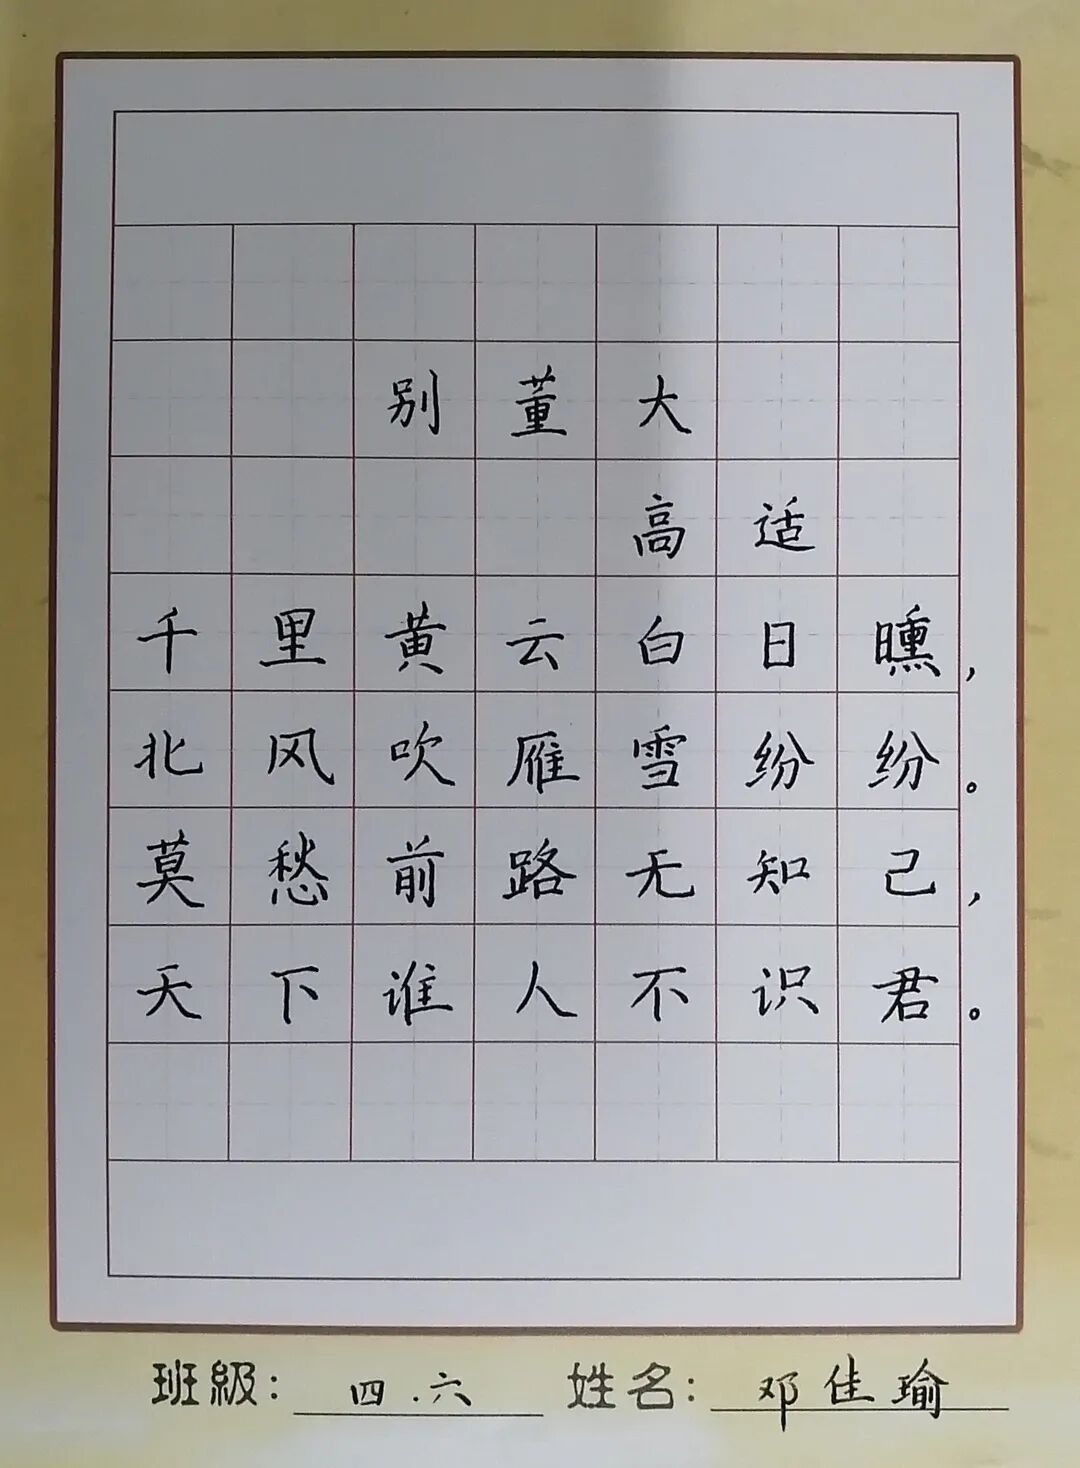 别董大
高适
千里黄云白日曛，
北风吹雁雪纷纷。
莫愁前路无知己，
天下谁人不识君。
班級：四.六 姓名：邓佳瑜